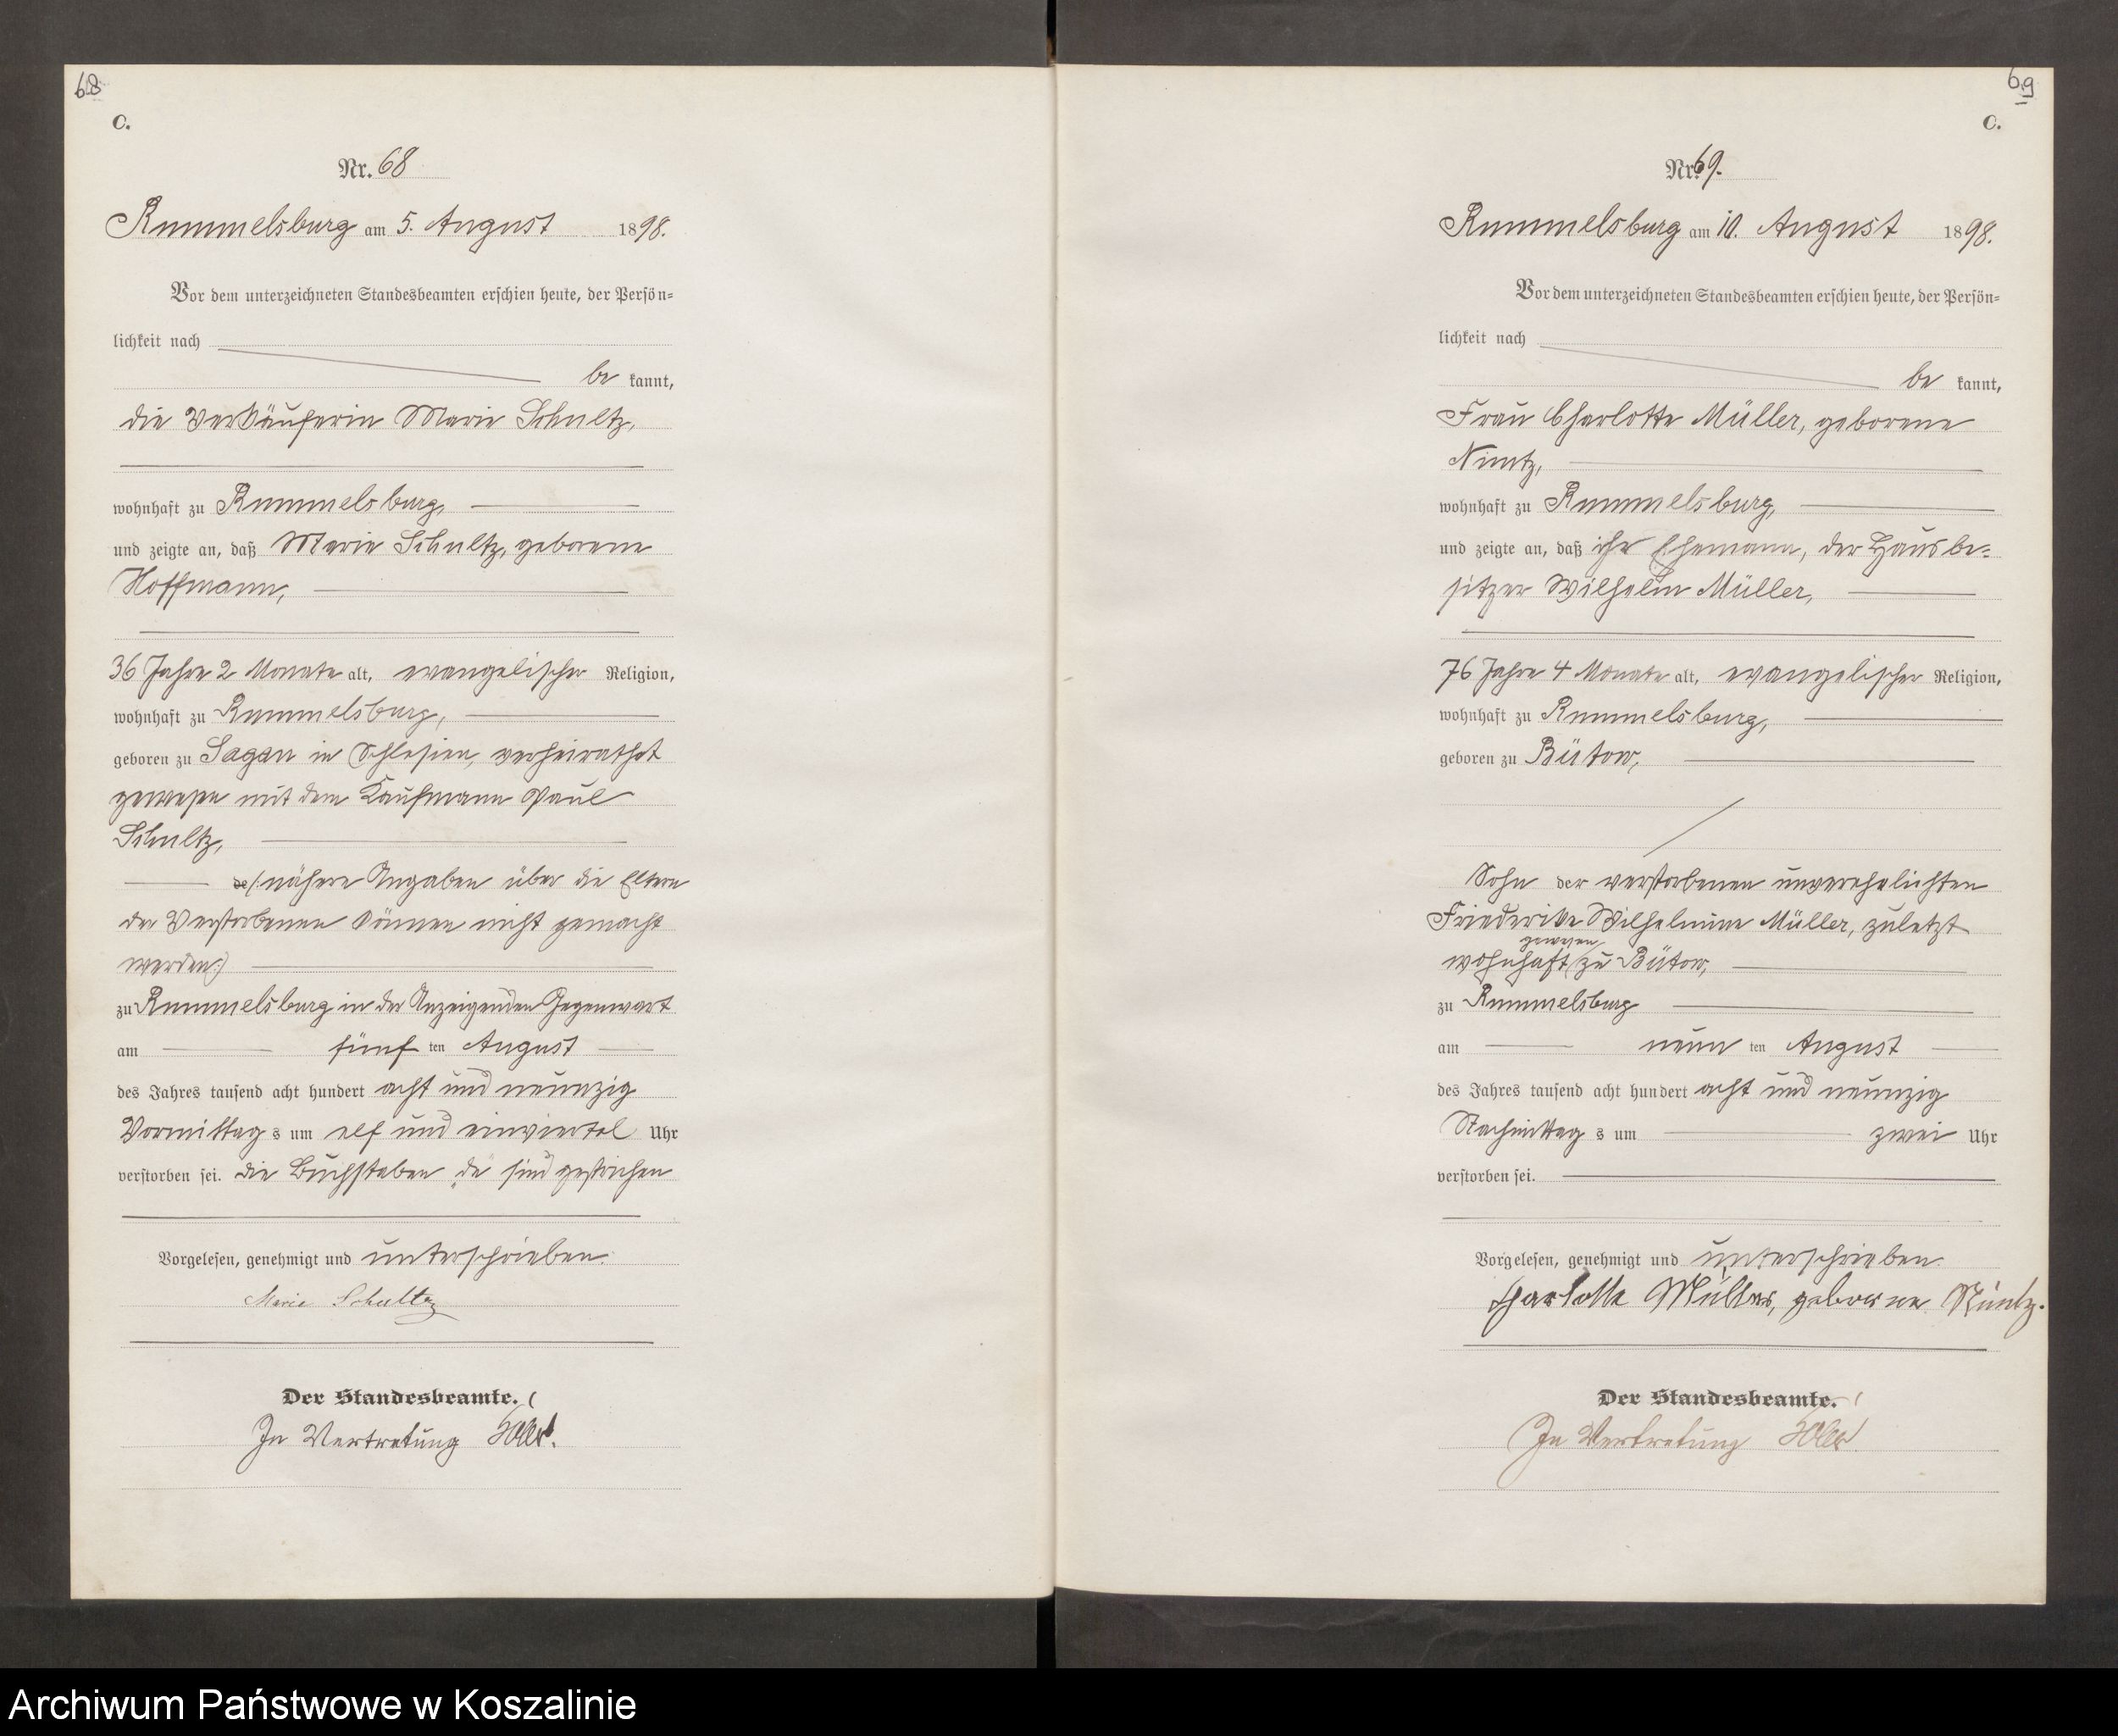 68
C.
Nr. 68
Rummelsburg am 5. August 1898.
Vor dem unterzeichneten Standesbeamten erschien heute, der Persön-
lichkeit nach
be kannt,
die Verkäuferin Marie Schultz,
wohnhaft zu Rummelsburg,
und zeigte an, daß Marie Schultz, geborene
Hoffmann,
36 Jahre 2 Monate alt, evangelischer Religion,
wohnhaft zu Rummelsburg,
geboren zu Sagan in Schlesien, verheirathet
gewesen mit dem Kaufmann Paul
Schultz,
de (: nähere Angaben über die Eltern
der Verstorbenen können nicht gemacht
werden :)
zu Rummelsburg in der Anzeigenden Gegenwart
am fünf ten August
des Jahres tausend acht hundert acht und neunzig
Vormittag s um elf und einviertel Uhr
verstorben sei. die Buchstaben „de" sind gestrichen
Vorgelesen, genehmigt und unterschrieben.
Marie Schultz
Der Standesbeamte.
In Vertretung
69
C.
Nr. 69.
Rummelsburg am 10. August 1898.
Vor dem unterzeichneten Standesbeamten erschien heute, der Persön-
lichkeit nach
be kannt,
Frau Charlotte Müller, geborene
Nimtz,
wohnhaft zu Rummelsburg,
und zeigte an, daß ihr Ehemann, der Hausbe-
sitzer Wilhelm Müller,
76 Jahre 4 Monate alt, evangelischer Religion,
wohnhaft zu Rummelsburg,
geboren zu Bütow,
Sohn der verstorbenen unverehelichten
Friederike Wilhelmine Müller, zuletzt
gewesen
wohnhaft zu Bütow,
zu Rummelsburg
am neun ten August
des Jahres tausend acht hundert acht und neunzig
Nachmittag s um zwei Uhr
verstorben sei.
Vorgelesen, genehmigt und unterschrieben.
Charlotte Müller, geborene Nimtz.
Der Standesbeamte.
In Vertretung
Archiwum Państwowe w Koszalinie